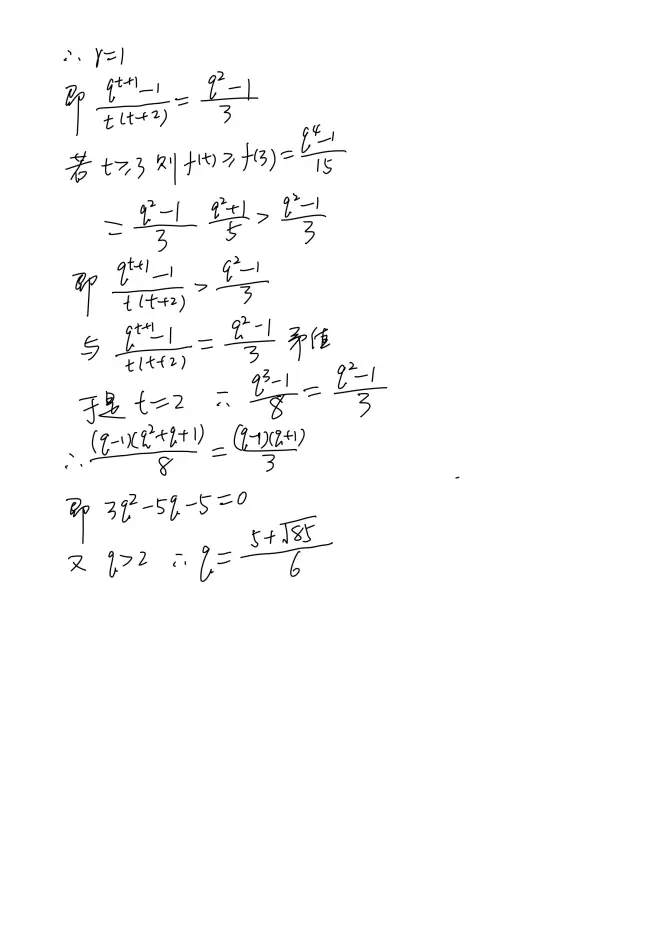 ∴ r=1
即 (q^{t+1}-1)/(t(t+2)) = (q²-1)/3
若 t≥3 则 f(t)≥f(3)=(q⁴-1)/15
= (q²-1)/3 (q²+1)/5 > (q²-1)/3
即 (q^{t+1}-1)/(t(t+2)) > (q²-1)/3
与 (q^{t+1}-1)/(t(t+2)) = (q²-1)/3
于是 t=2 ∴ (q³-1)/8 = (q²-1)/3
∴ ((q-1)(q²+q+1))/8 = ((q-1)(q+1))/3
即 3q²-5q-5=0
又 q>2 ∴ q=(5+√85)/6